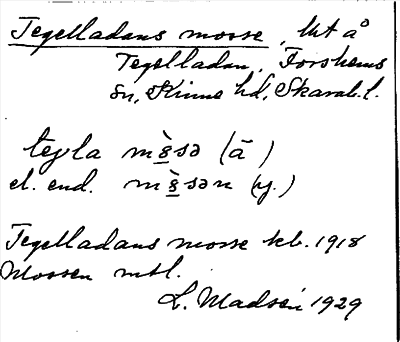 Tegelladans mosse, lht å
Tegelladan, Forshems
sn, Kinne hd, Skarab. l.
tegla mòsə (ā)
el. end. mòsən (y.)
Tegelladans mosse kb. 1918
Mossen mtl.
L. Madsén 1929